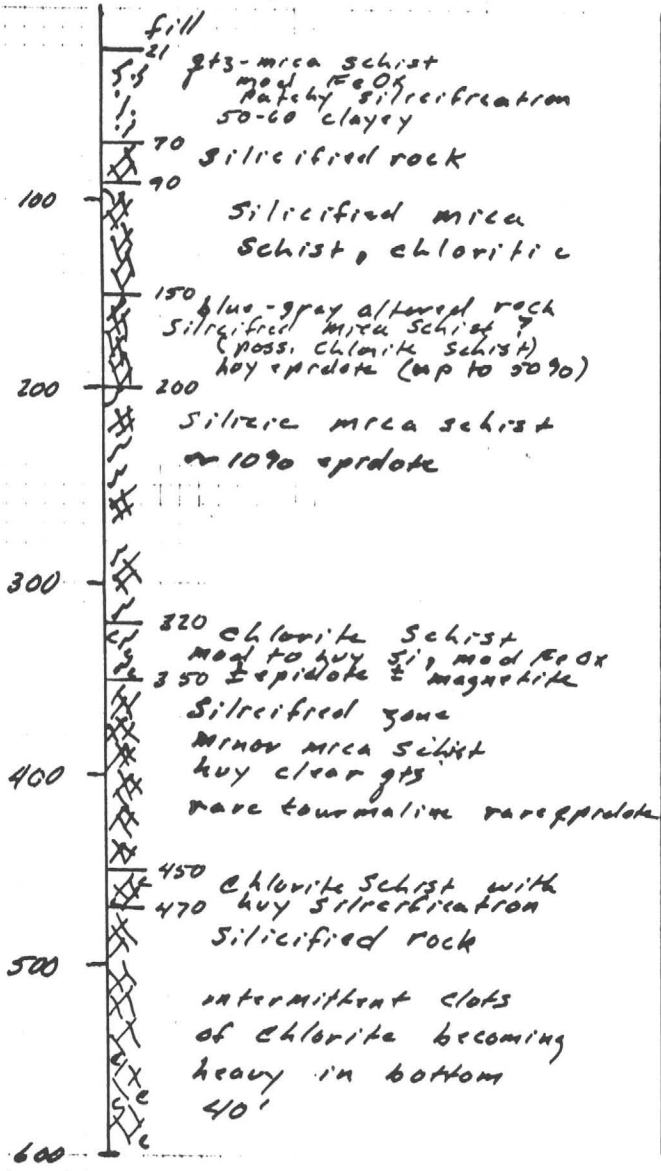 fill
21
qtz-mica schist
mod FeOx
patchy silicification
50-60 clayey
70
silicified rock
90
100
Silicified mica
schist, chloritic
150
blue-gray altered rock
Silicified mica schist?
(poss. chlorite schist)
hvy epidote (up to 50%)
200
200
Silicic mica schist
~ 10% epidote
300
320
chlorite schist
mod to hvy Si, mod FeOx
350 ± epidote ± magnetite
Silicified zone
minor mica schist
hvy clear qtz
400
rare tourmaline rare epidote
450
chlorite schist with
470
hvy silicification
Silicified rock
500
intermittent clots
of chlorite becoming
heavy in bottom
40'
600